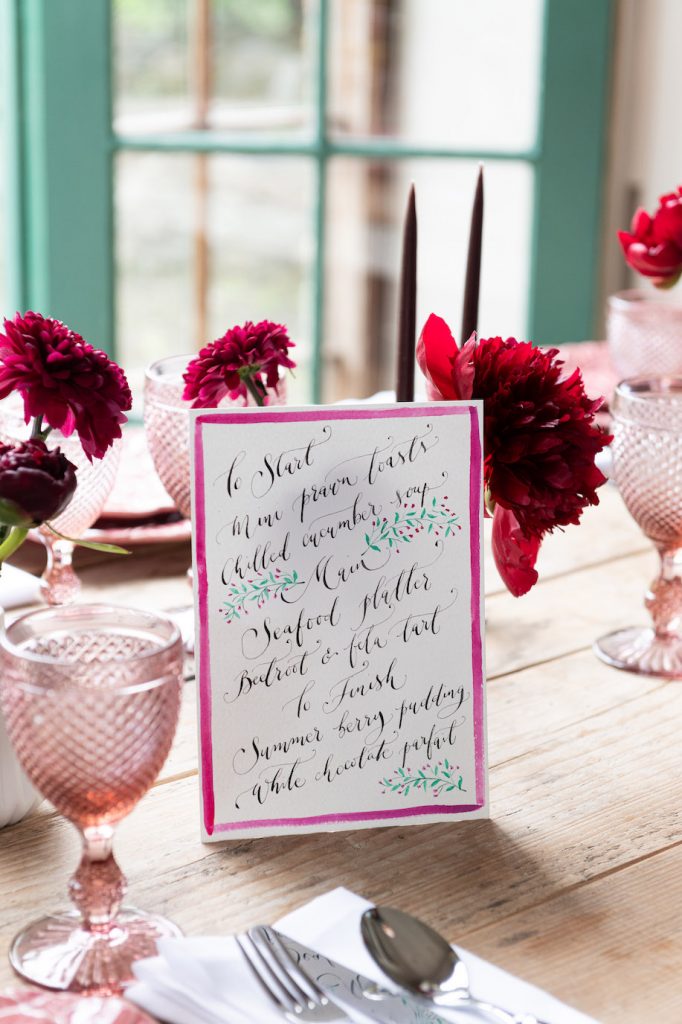 To Start
Mini prawn toasts
Chilled cucumber soup
Main
Seafood platter
Beetroot & feta tart
To Finish
Summer berry pudding
White chocolate parfait